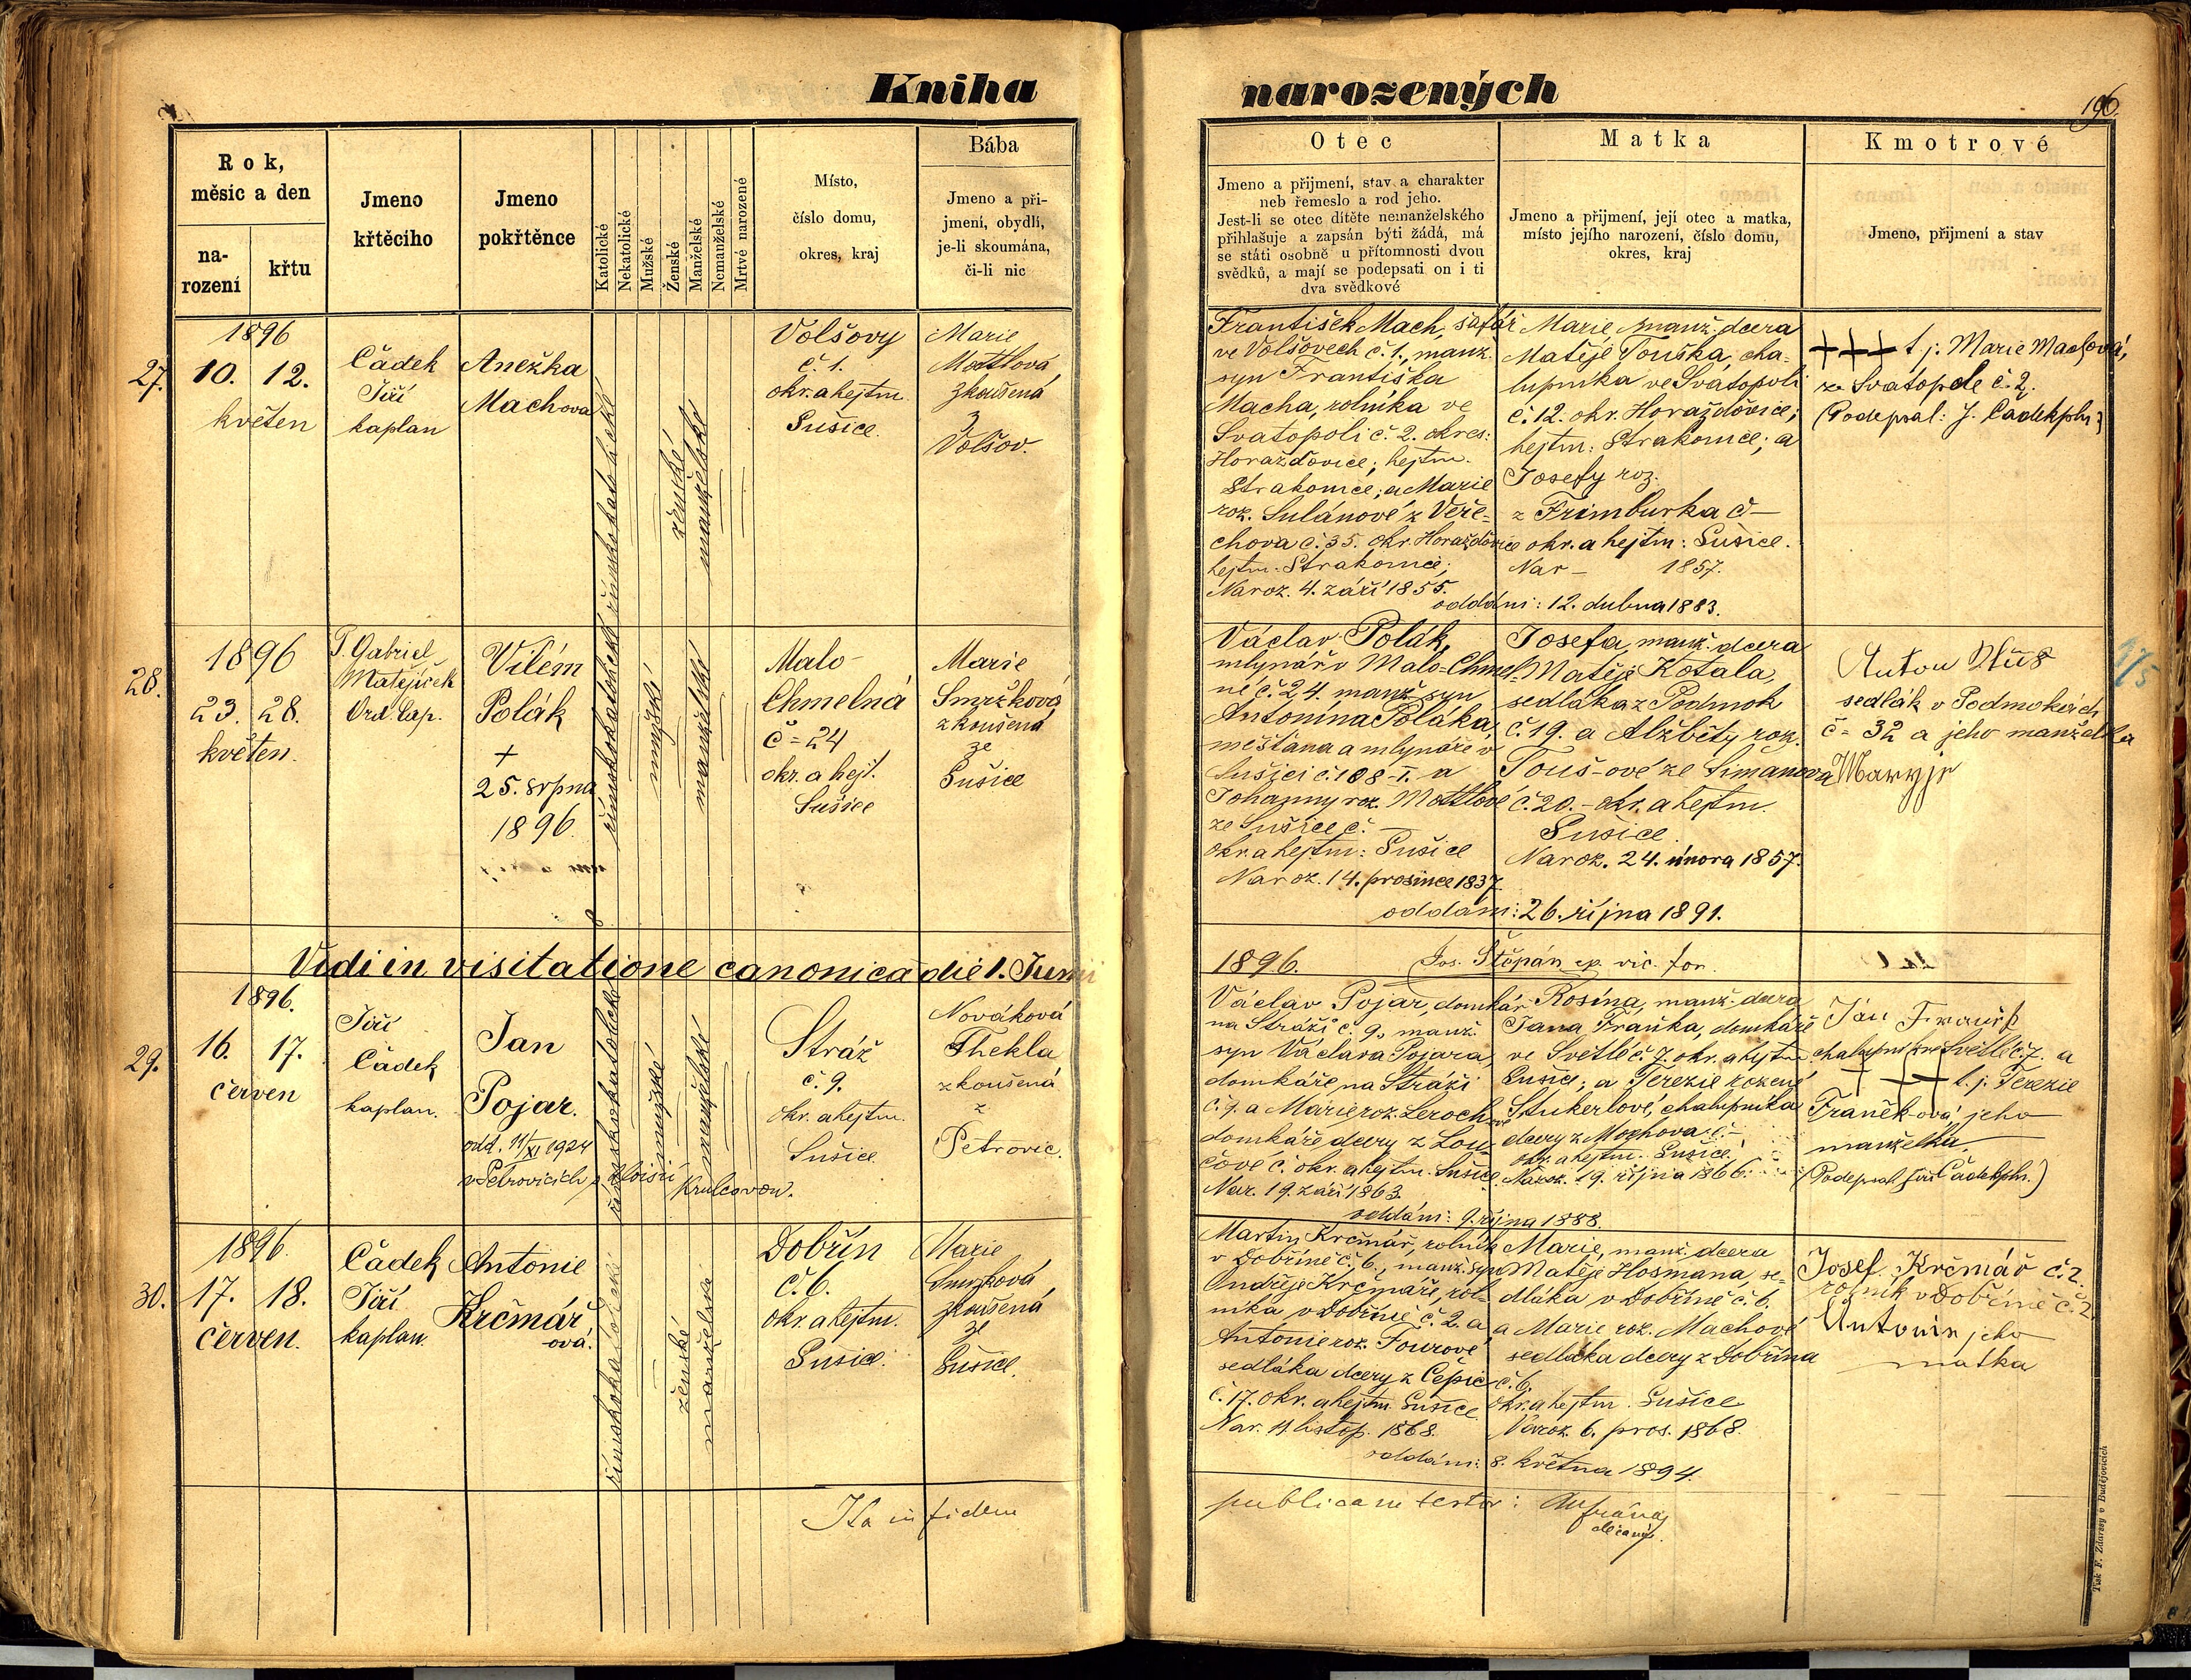 Kniha narozených
196.
Rok,
měsíc a den
na-
rození
křtu
Jmeno
křtěcího
Jmeno
pokřtěnce
Katolické
Nekatolické
Mužské
Ženské
Manželské
Nemanželské
Mrtvé narozené
Místo,
číslo domu,
okres, kraj
Bába
Jmeno a při-
jmení, obydlí,
je-li skoumána,
či-li nic
Otec
Jmeno a přijmení, stav a charakter
neb řemeslo a rod jeho.
Jest-li se otec dítěte nemanželského
přihlašuje a zapsán býti žádá, má
se státi osobně u přítomnosti dvou
svědků, a mají se podepsati on i ti
dva svědkové
Matka
Jmeno a přijmení, její otec a matka,
místo jejího narození, číslo domu,
okres, kraj
Kmotrové
Jmeno, přijmení a stav
27.
1896
10. 12.
květen
Čádek
Jiří
kaplan
Anežka
Machova
římskokatolické
ženské
manželské
Volšovy
č. 1.
okr. a hejtm.
Sušice.
Marie
Mottlová
zkoušená
z
Volšov.
František Mach, šafář
ve Volšovech č. 1., manž.
syn Františka
Macha, rolníka ve
Svatopoli č. 2. okres:
Horažďovice; hejtm.
Strakonice; a Marie
roz. Sulánové z Veře-
chova č. 35. okr. Horažďovice
hejtm. Strakonice;
Naroz. 4. září 1855.
Marie, manž. dcera
Matěje Touška, cha-
lupníka ve Svatopoli
č. 12. okr. Horažďovice;
hejtm: Strakonice; a
Josefy roz.
z Frimburka č –
okr. a hejtm: Sušice.
Nar – 1857.
oddáni: 12. dubna 1883.
+++ t. j. Marie Machová,
ze Svatopole č. 2.
(Podepsal: J. Čádek kpln.)
28.
1896
23. 28.
květen.
P. Gabriel
Matějíček
Ord. Cap.
Vilém
Polák
+
25. srpna
1896.
římskokatolické
mužské
manželské
Malo-
Chmelná
č = 24
okr. a hejt.
Sušice
Marie
Smržková
zkoušená
ze
Sušice
Václav Polák,
mlynář v Malo-Chmel-
né č. 24. manž. syn
Antonína Poláka,
měšťana a mlynáře v
Sušici č. 108-I. a
Johanny roz. Mottlové
ze Sušice č. –
okr. a hejtm: Sušice
Naroz. 14. prosince 1837.
Josefa, manž. dcera
Matěje Kotala,
sedláka z Podmok
č. 19. a Alžběty roz.
Touš-ové ze Simanova
č. 20. – okr. a hejtm.
Sušice.
Naroz. 24. února 1857.
oddáni: 26. října 1891.
sedlák v Podmokách
č = 32 a jeho manželka
Vidi in visitatione canonica die 1. Juni
1896. Jos. Štěpán ep. vic. for.
29.
1896.
16. 17.
červen
Jiří
Čádek
kaplan.
Jan
Pojar.
odd. 11/XI 1924
v Petrovicích s Aloisií Krulcovou.
římskokatolické
mužské
manželské
Stráž
č. 9.
okr. a hejtm.
Sušice.
Nováková
Thekla
zkoušená
z
Petrovic.
Václav Pojar, domkář
na Stráži č. 9., manž.
syn Václava Pojara,
domkáře na Stráži
č. 9. a Marie roz. Leroch-ové
domkáře dcery z Lou-
čové č. okr. a hejtm. Sušice.
Nar. 19. září 1863.
Rosína, manž. dcera
Jana Fraňka, domkáře
ve Světlé č. 7. okr. a hejtm.
Sušice; a Terezie rozené
Stukerlové, chalupníka
dcery z Mochova č. –
okr. a hejtm. Sušice.
Naroz. 19. října 1866.
oddáni: 9. října 1888.
chalupník ve Světlé č. 7. a
+++ t. j. Terezie
Fraňková jeho
manželka.
(Podepsal Jiří Čádek kpln.)
30.
1896.
17. 18.
červen.
Čádek
Jiří
kaplan.
Antonie
Krčmář
ová.
římskokatolické
ženské
manželské
Dobřín
č. 6.
okr. a hejtm.
Sušice.
Marie
Smržková
zkoušená
ze
Sušice.
Martin Krčmář, rolník
v Dobříně č. 6., manž. syn
Ondřeje Krčmáře, rol-
níka v Dobříně č. 2. a
Antonie roz. Fourové
sedláka dcery z Čepic
č. 17. okr. a hejtm. Sušice
Nar. 11. listop. 1868.
Marie, manž. dcera
Matěje Hosmana, se-
dláka v Dobříně č. 6.
a Marie roz. Machové
sedláka dcery z Dobřína
č. 6.
okr. a hejtm. Sušice
Naroz. 6. pros. 1868.
oddáni: 8. května 1894.
Josef Krčmář č. 2.
rolník v Dobříně č. 2
jeho
matka
Ita in fidem publicam testor:
děkan
Tisk F. Zdarssy v Budějovicích